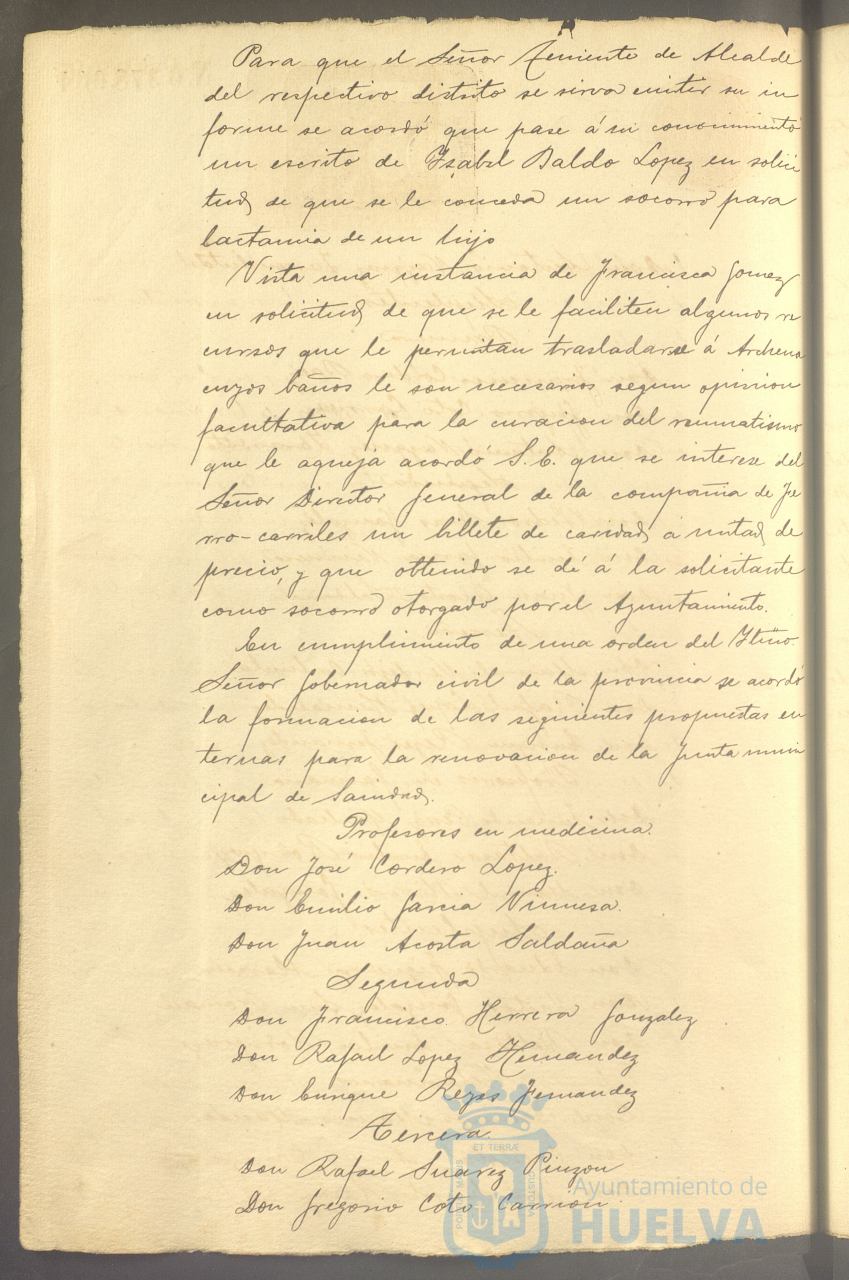 Para que el Señor Teniente de Alcalde
del respectivo distrito se sirva emitir su in
forme se acordó que pase á su conocimiento
un escrito de Ysabel Baldo Lopez en solici
tud de que se le conceda un socorro para
lactancia de un hijo
Vista una instancia de Francisca Gomez
en solicitud de que se le faciliten algunos re
cursos que le permitan trasladarse á Archena
cuyos baños le son necesarios segun opinion
facultativa para la curacion del reumatismo
que le aqueja acordó S. E. que se interese del
Señor Director General de la compañia de Fe
rro-carriles un billete de caridad á mitad de
precio, y que obtenido se dé á la solicitante
como socorro otorgado por el Ayuntamiento.
En cumplimiento de una orden del Yltmo.
Señor Gobernador civil de la provincia se acordó
la formacion de las siguientes propuestas en
ternas para la renovacion de la Junta muni
cipal de Sanidad.
Profesores en medicina.
Don José Cordero Lopez.
Don Emilio Garcia
Don Juan Acosta Saldaña
Segunda
Don Francisco Herrera Gonzalez
Don Rafael Lopez Hernandez
Don Enrique Reyes Fernandez
Tercera.
Don Rafael Suarez Pinzon
Don Gregorio Coto Carrion.
ET TERRÆ
Ayuntamiento de
HUELVA